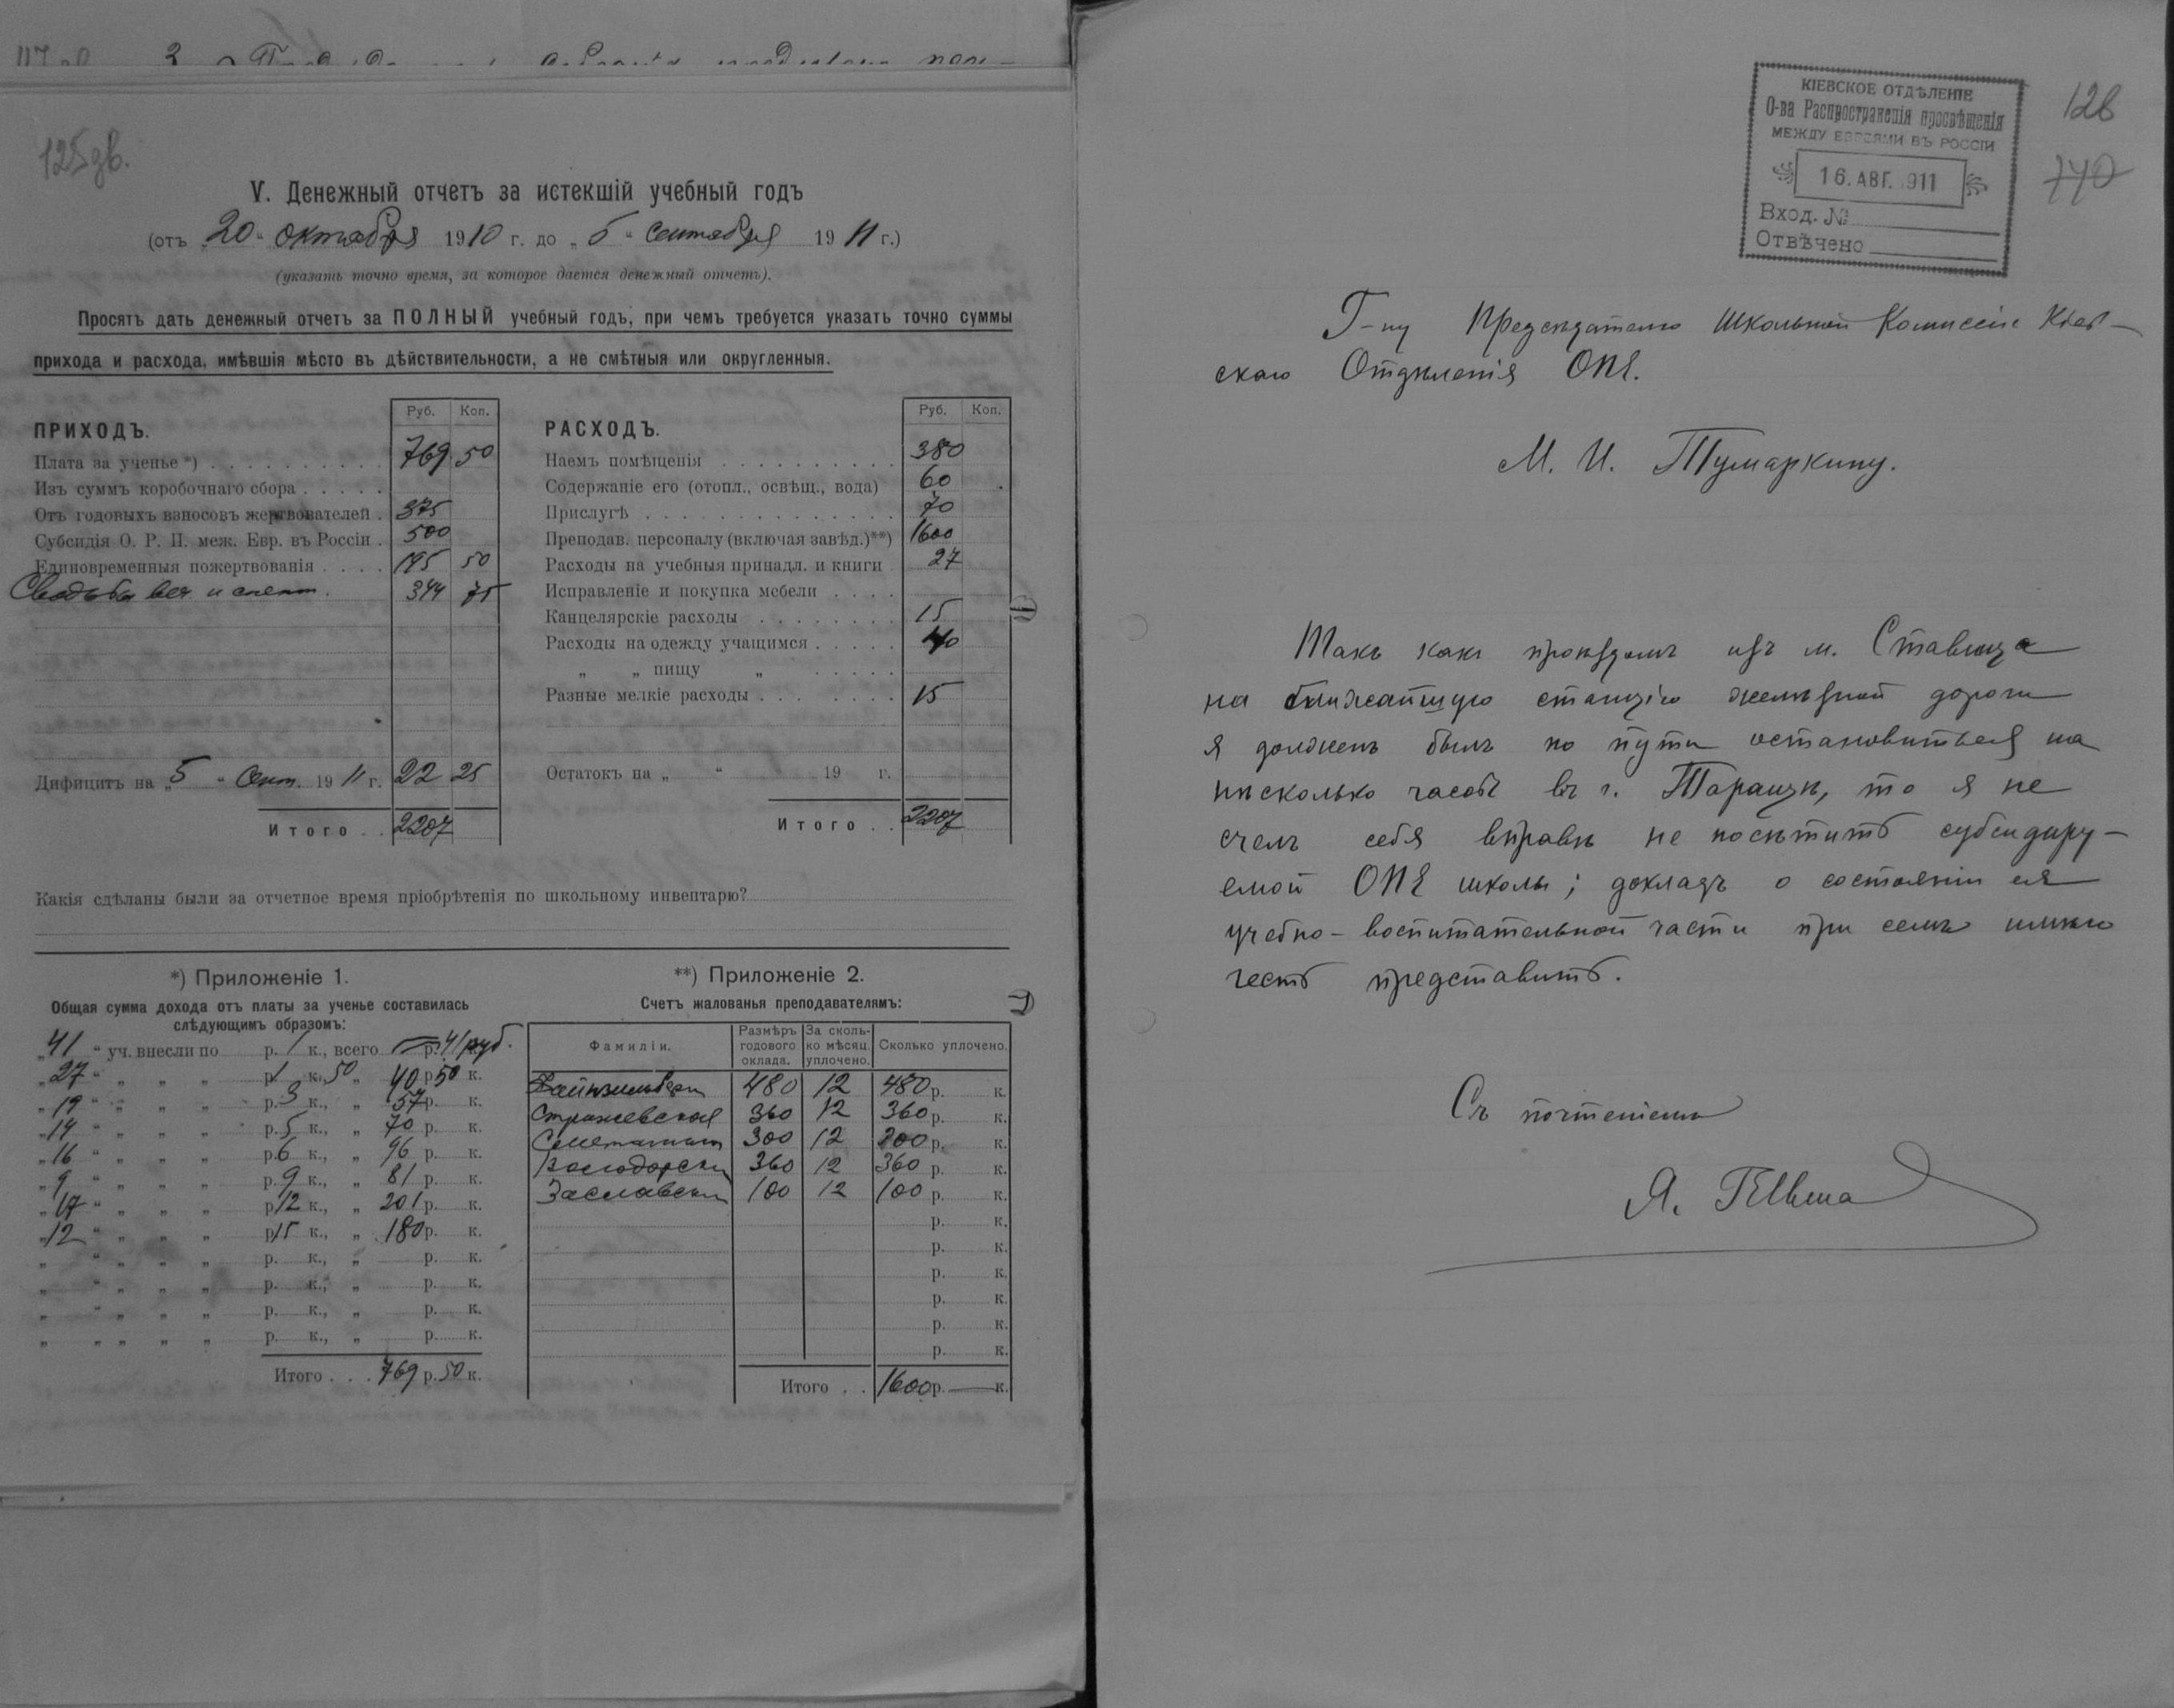 125 зв.
V. Денежный отчетъ за истекшій учебный годъ
(отъ „20“ октября 1910 г. до „5“ сентября 1911 г.)
(указать точно время, за которое дается денежный отчетъ).
Просятъ дать денежный отчетъ за ПОЛНЫЙ учебный годъ, при чемъ требуется указать точно суммы
прихода и расхода, имѣвшія мѣсто въ дѣйствительности, а не смѣтныя или округленныя.
ПРИХОДЪ. Руб. Коп.
Плата за ученье *) 769 50
Изъ суммъ коробочнаго сбора
Отъ годовыхъ взносовъ жертвователей 375
Субсидія О. Р. П. меж. Евр. въ Россіи 500
Единовременныя пожертвованія 195 50
Свадьбы веч. и спект. 344 75
Дифицитъ на „5“ Сент. 1911 г. 22 25
Итого 2207
РАСХОДЪ. Руб. Коп.
Наемъ помѣщенія 380
Содержаніе его (отопл., освѣщ., вода) 60
Прислугѣ 70
Преподав. персоналу (включая завѣд.)**) 1600
Расходы на учебныя принадл. и книги 27
Исправленіе и покупка мебели
Канцелярскіе расходы 15
Расходы на одежду учащимся 40
„ „ пищу „
Разные мелкіе расходы 15
Остатокъ на „ “ 19 г.
Итого 2207
Какія сдѣланы были за отчетное время пріобрѣтенія по школьному инвентарю?
*) Приложеніе 1.
Общая сумма дохода отъ платы за ученье составилась
слѣдующимъ образомъ:
„41“ уч. внесли по р. 1 к., всего р. 41 руб.
„27“ „ „ „ р. 1 к., 50 „ 40 р. 50 к.
„19“ „ „ „ р. 3 к., „ 57 р. к.
„14“ „ „ „ р. 5 к., „ 70 р. к.
„16“ „ „ „ р. 6 к., „ 96 р. к.
„9“ „ „ „ р. 9 к., „ 81 р. к.
„17“ „ „ „ р. 12 к., „ 201 р. к.
„12“ „ „ „ р. 15 к., „ 180 р. к.
„ “ „ „ „ р. к., „ р. к.
„ “ „ „ „ р. к., „ р. к.
„ “ „ „ „ р. к., „ р. к.
„ “ „ „ „ р. к., „ р. к.
Итого 769 р. 50 к.
**) Приложеніе 2.
Счетъ жалованья преподавателямъ:
Фамиліи. Размѣръ годового оклада. За сколько мѣсяц. уплочено. Сколько уплочено.
480 12 480 р. к.
Стражевская 360 12 360 р. к.
300 12 300 р. к.
360 12 360 р. к.
Заславски 100 12 100 р. к.
р. к.
р. к.
р. к.
р. к.
р. к.
р. к.
Итого 1600 р. — к.
КІЕВСКОЕ ОТДѢЛЕНІЕ
О-ва Распространенія просвѣщенія
МЕЖДУ ЕВРЕЯМИ ВЪ РОССІИ
16. АВГ. 1911
Вход. №
Отвѣчено
126
770
Г-ну Предсѣдателю Школьной Комиссіи Кіев-
скаго Отдѣленія ОПЕ.
М. И. Тумаркину.
Такъ какъ проѣздомъ изъ м. Ставища
на ближайшую станцію желѣзной дороги
я долженъ былъ по пути остановиться на
нѣсколько часовъ въ г. Таращѣ, то я не
счелъ себя вправѣ не посѣтить субсидиру-
емой ОПЕ школы; докладъ о состояніи ея
учебно-воспитательной части при семъ имѣю
честь представить.
Съ почтеніемъ
Я.